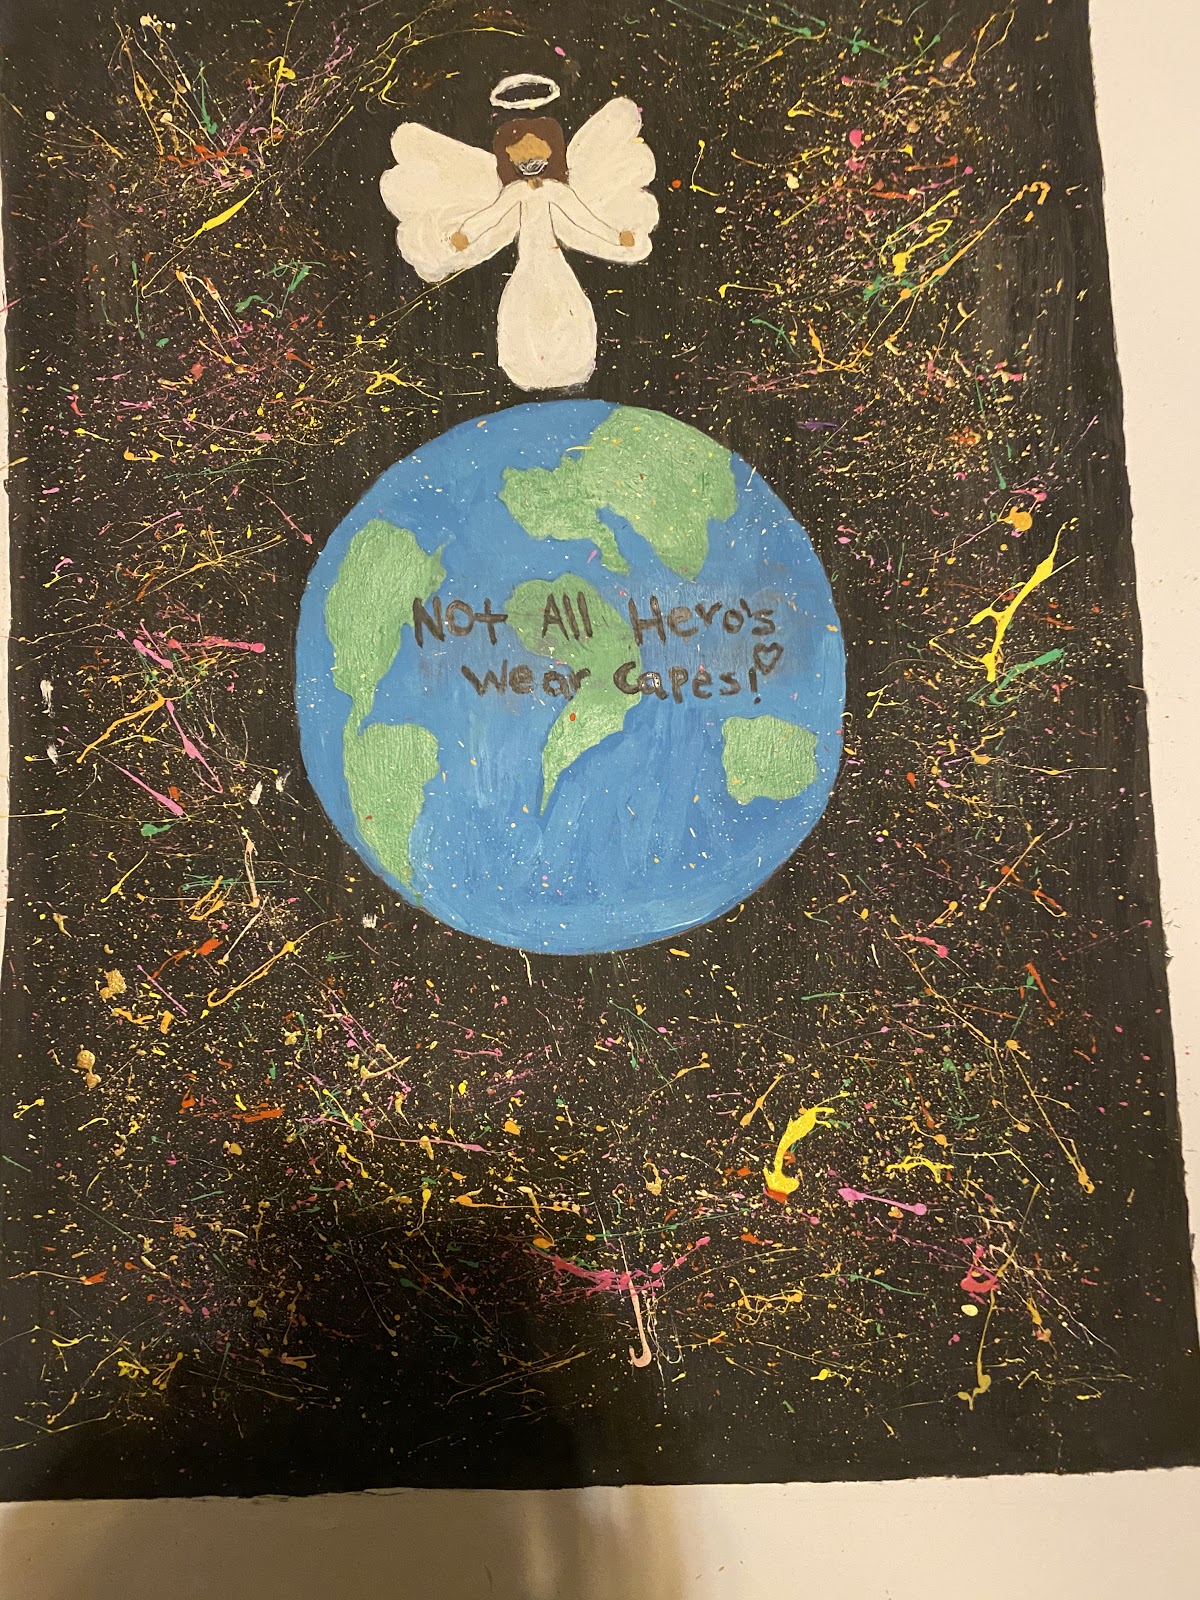 Not All Hero's
Wear Capes!♡